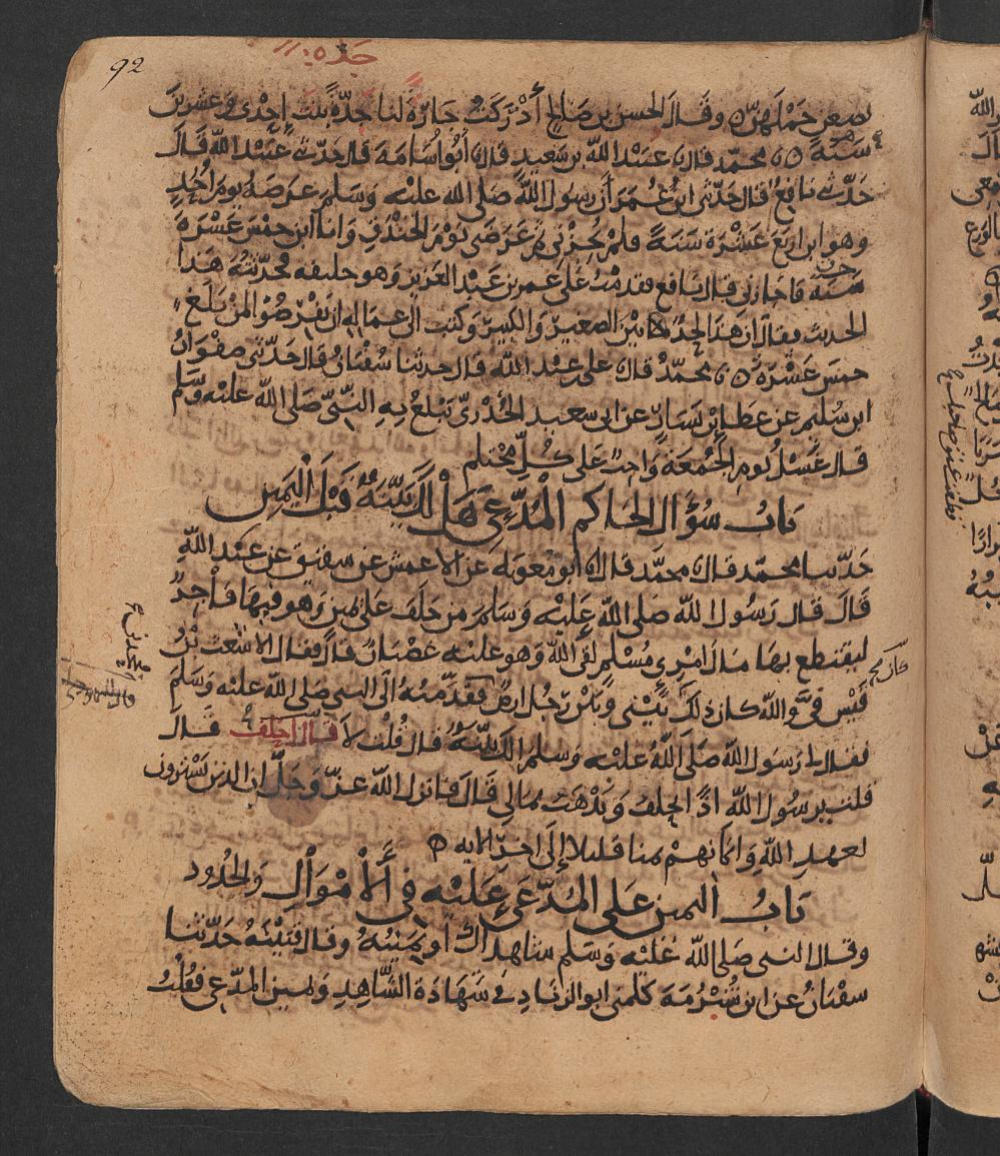 92
جده
يضعن حملهن ه وقال الحسن بن صالح أدركت جارة لنا جدة بنت إحدى وعشرين
سنة ه محمد قال عبيد الله بن سعيد قال أبو أسامة قال حدثني عبيد الله قال
حدثني نافع قال حدثني ابن عمر أن رسول الله صلى الله عليه وسلم عرضه يوم أحد
وهو ابن أربع عشرة سنة فلم يجزني ثم عرضني يوم الخندق وانا ابن خمس عشرة
سنة فاجازني قال نافع فقدمت على عمر بن عبد العزيز وهو خليفة فحدثته هذا
الحديث فقال ان هذا لحد بين الصغير والكبير وكتب الى عماله ان يفرضوا لمن بلغ
خمس عشرة ه محمد قال علي بن عبد الله قال حدثنا سفيان قال حدثني صفوان
ابن سليم عن عطاء بن يسار عن ابي سعيد الخدري يبلغ به النبي صلى الله عليه وسلم
قال غسل يوم الجمعة واجب على كل محتلم
باب سؤال الحاكم المدعي هل لك بينة قبل اليمين
حدثنا محمد قال محمد قال أبو معوية عن الاعمش عن شقيق عن عبد الله
قال قال رسول الله صلى الله عليه وسلم من حلف على يمين وهو فيها فاجر
ليقتطع بها مال امرئ مسلم لقي الله وهو عليه غضبان قال فقال الاشعث بن
قيس في والله كان ذلك بيني وبين رجل ارض فقدمته الى النبي صلى الله عليه وسلم
فقال لي رسول الله صلى الله عليه وسلم الك بينة قال قلت لا قال احلف قال
قلت يرسول الله اذا يحلف ويذهب بمالي قال فانزل الله عز وجل ان الذين يشترون
بعهد الله وايمانهم ثمنا قليلا إلى اخر الايه ه
باب اليمين على المدعى عليه في الأموال والحدود
وقال النبي صلى الله عليه وسلم شاهداك او يمينه وقال قتيبة حدثنا
سفيان عن ابن شبرمة كلمني ابو الزناد في شهادة الشاهد ويمين المدعي فقلت